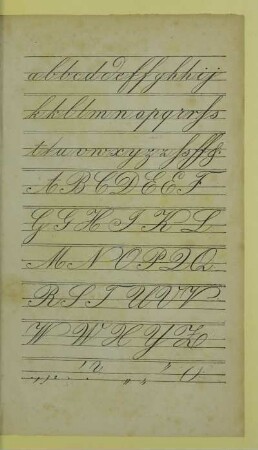 a b b c d d e f f g h h i j
k k l l m n o p q r s ſ s
t t u v w x y z z ſs ff &
A B C D E E F
G G H I K L
M N O P Q Q
R S T U V V
W W X Y Z